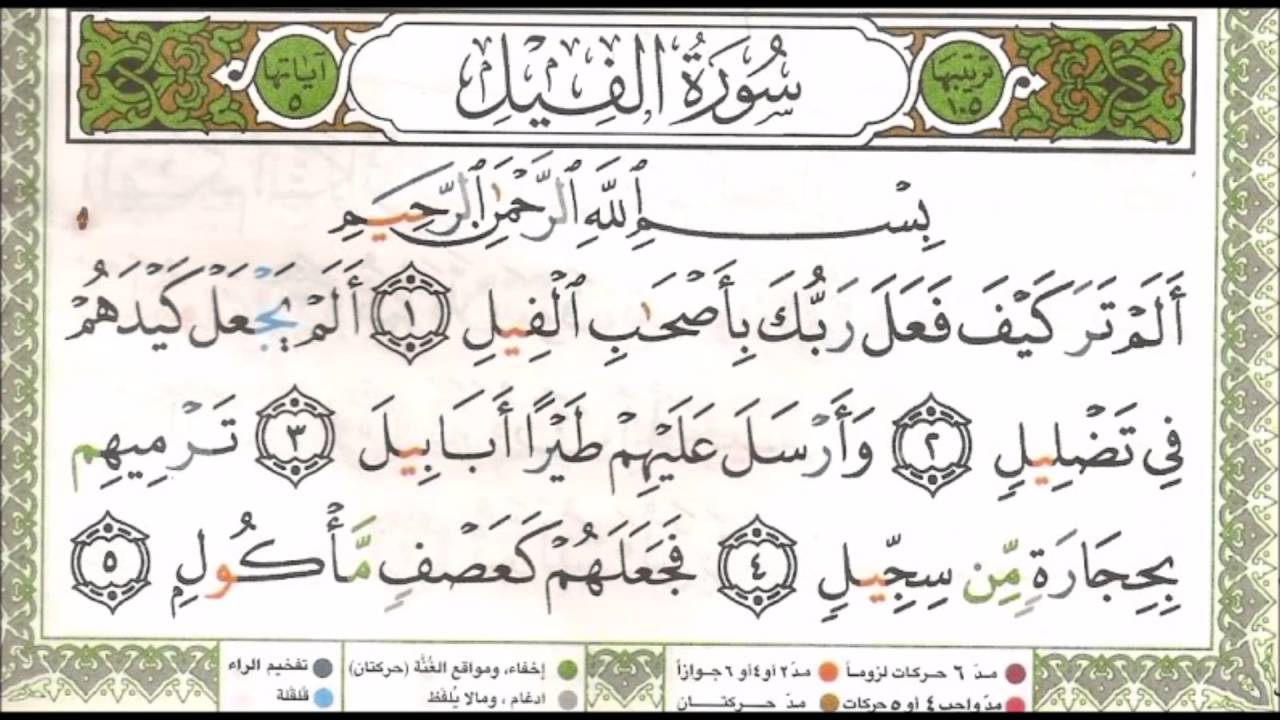 ترتيبها ١٠٥
سُورَةُ الفِيلِ
آياتها ٥
بِسْمِ ٱللَّهِ ٱلرَّحْمَٰنِ ٱلرَّحِيمِ
أَلَمْ تَرَ كَيْفَ فَعَلَ رَبُّكَ بِأَصْحَٰبِ ٱلْفِيلِ ١ أَلَمْ يَجْعَلْ كَيْدَهُمْ
فِي تَضْلِيلٍ ٢ وَأَرْسَلَ عَلَيْهِمْ طَيْرًا أَبَابِيلَ ٣ تَرْمِيهِم
بِحِجَارَةٍ مِّن سِجِّيلٍ ٤ فَجَعَلَهُمْ كَعَصْفٍ مَّأْكُولٍ ٥
مدّ ٦ حركات لزوماً مدّ ٢ أو ٤ أو ٦ جوازاً إخفاء، ومواقع الغُنَّة (حركتان) تفخيم الراء
مدّ واجب ٤ أو ٥ حركات مدّ حركتان ادغام، ومالا يُلفَظ قلقلة